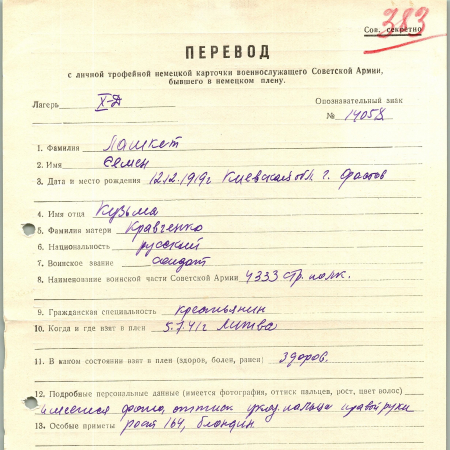 383
Сов. секретно
ПЕРЕВОД
с личной трофейной немецкой карточки военнослужащего Советской Армии,
бывшего в немецком плену.
Лагерь X-Д
Опознавательный знак
№ 14058
1. Фамилия Лашкет
2. Имя Семен
3. Дата и место рождения 12.12.1919г Киевская обл. г. Фастов
4. Имя отца Кузьма
5. Фамилия матери Кравченко
6. Национальность русский
7. Воинское звание солдат
8. Наименование воинской части Советской Армии 4333 стр. полк.
9. Гражданская специальность крестьянин
10. Когда и где взят в плен 5.7.41г Литва
11. В каком состоянии взят в плен (здоров, болен, ранен) здоров.
12. Подробные персональные данные (имеется фотография, оттиск пальцев, рост, цвет волос)
имеется фото, оттиск указ. пальца правой руки
13. Особые приметы рост 164, блондин